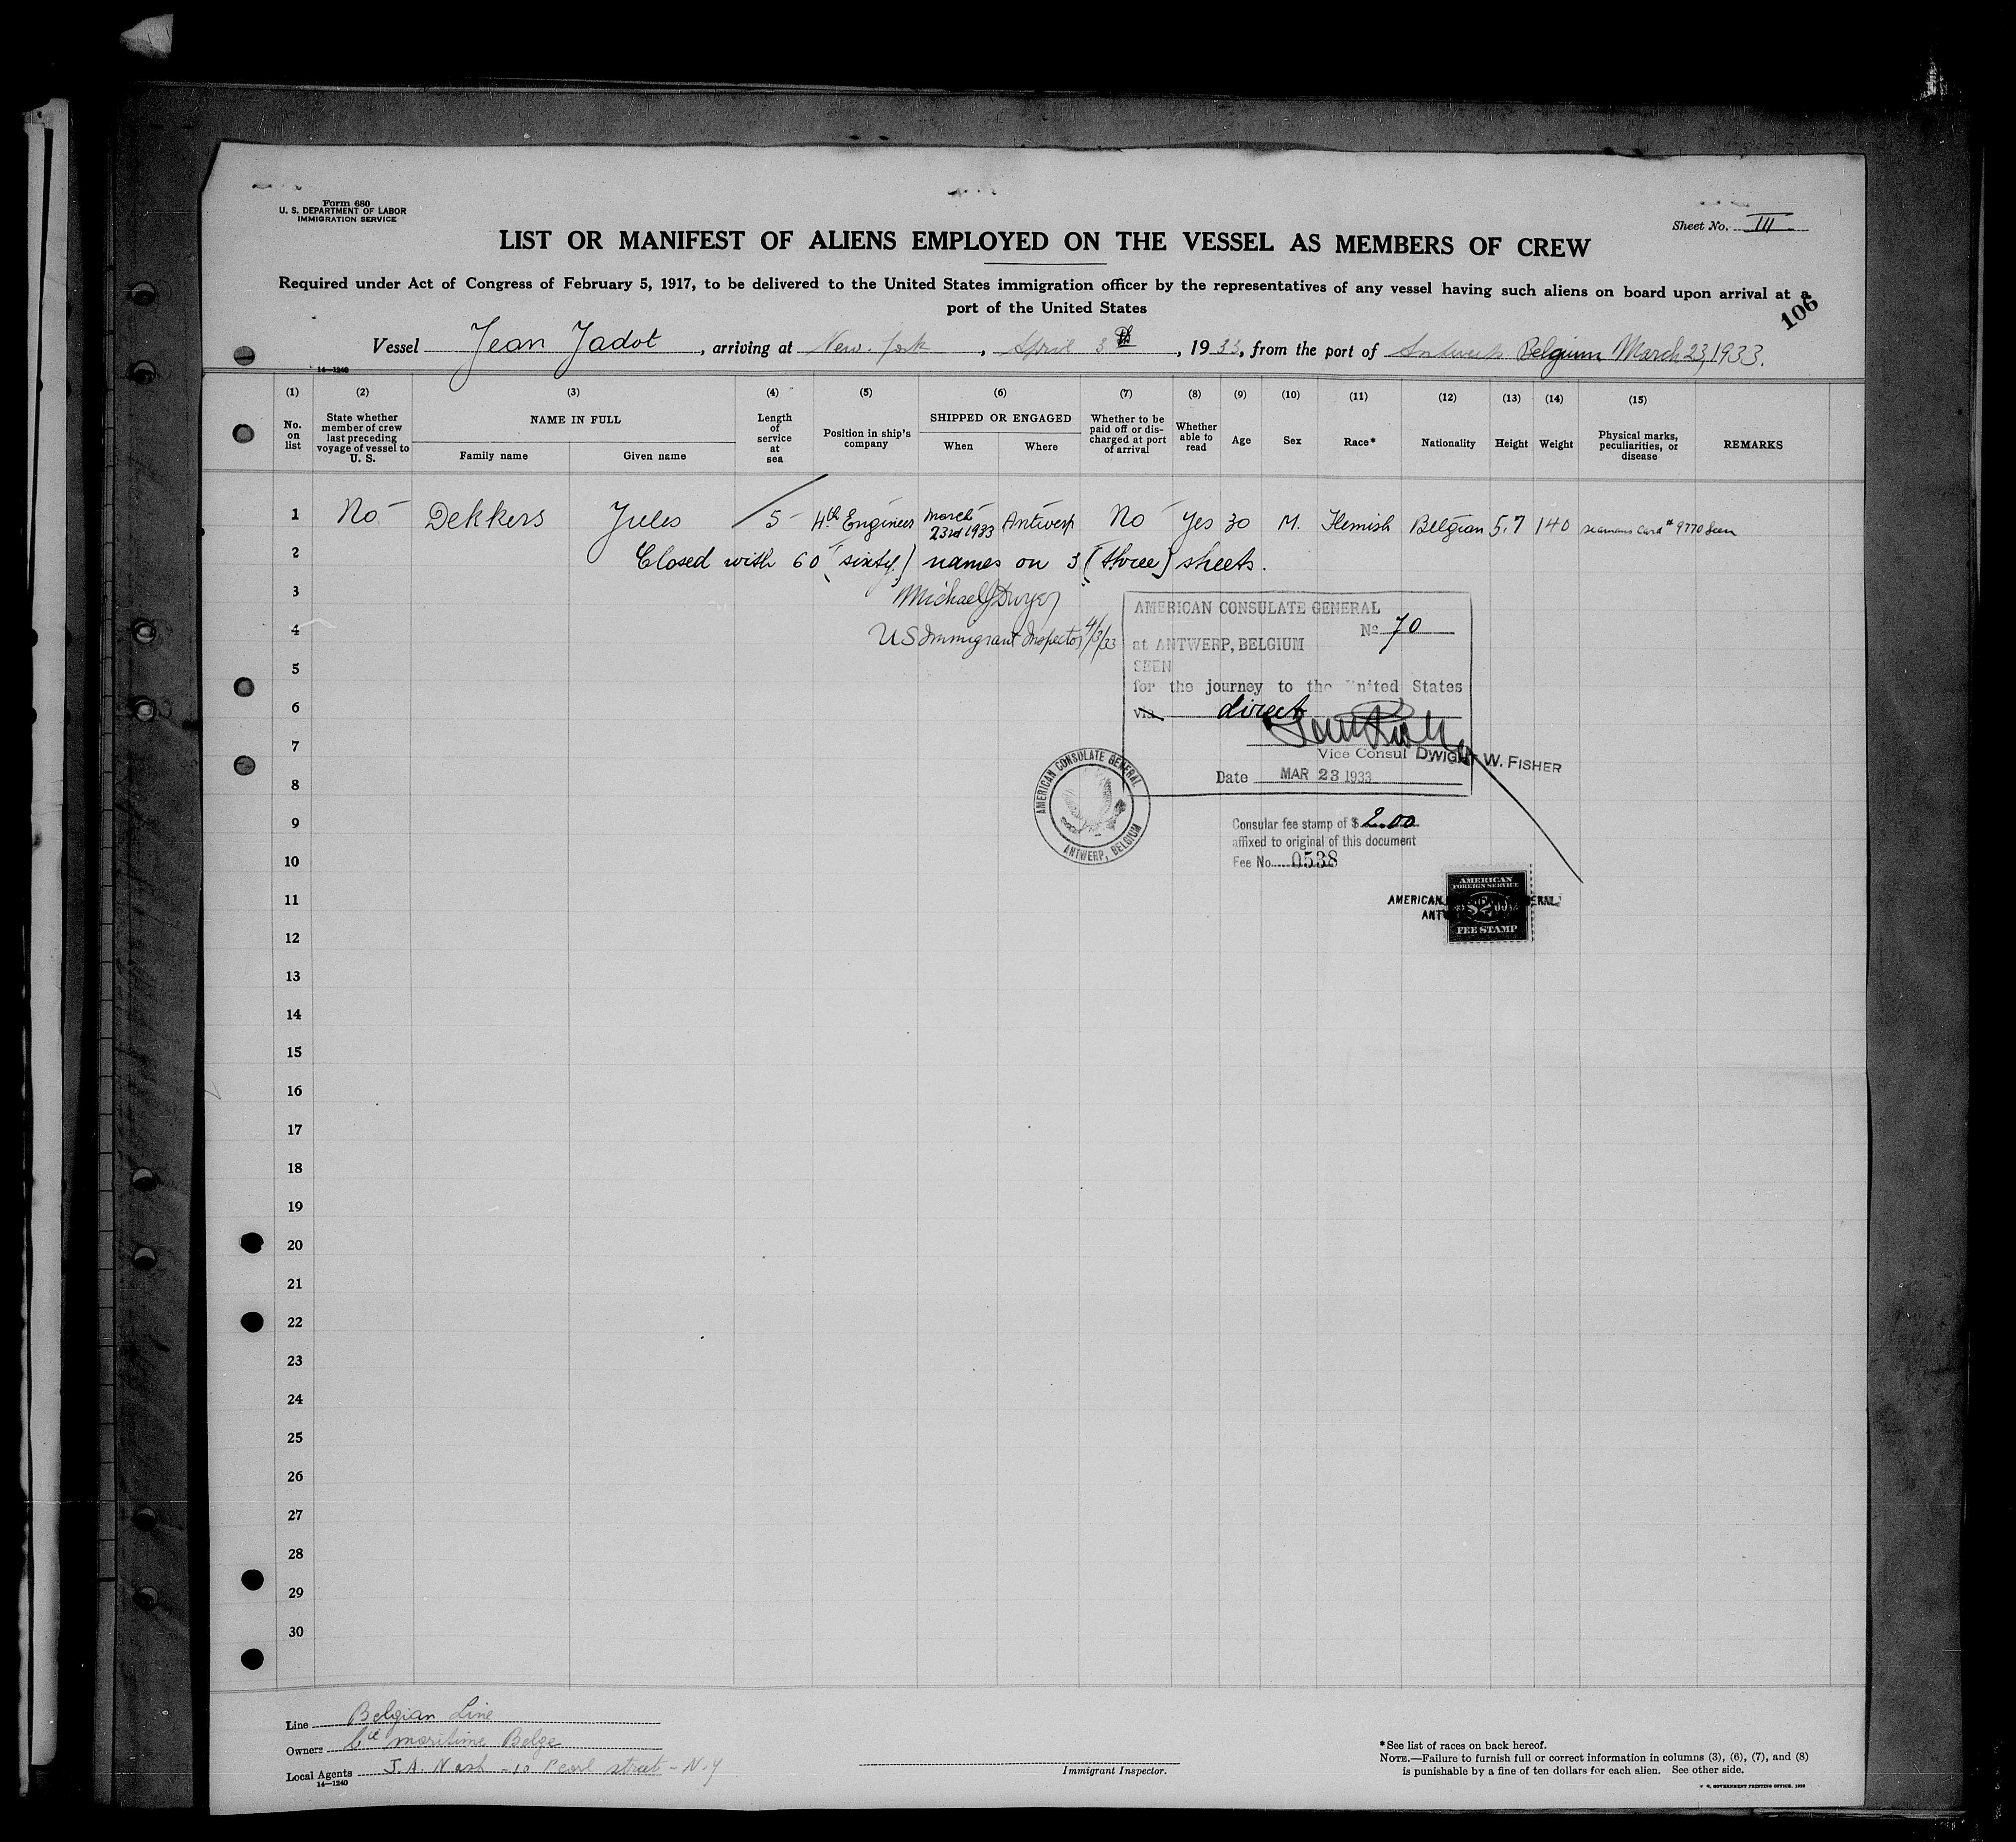 Form 680
U. S. DEPARTMENT OF LABOR
IMMIGRATION SERVICE
Sheet No. III
LIST OR MANIFEST OF ALIENS EMPLOYED ON THE VESSEL AS MEMBERS OF CREW
Required under Act of Congress of February 5, 1917, to be delivered to the United States immigration officer by the representatives of any vessel having such aliens on board upon arrival at a
port of the United States
106
Vessel Jean Jadot, arriving at New York, April 3th, 1933, from the port of Antwerp Belgium March 23, 1933.
14—1240
(1) (2) (3) (4) (5) (6) (7) (8) (9) (10) (11) (12) (13) (14) (15)
No. on list
State whether member of crew last preceding voyage of vessel to U. S.
NAME IN FULL
Family name
Given name
Length of service at sea
Position in ship's company
SHIPPED OR ENGAGED
When
Where
Whether to be paid off or discharged at port of arrival
Whether able to read
Age
Sex
Race*
Nationality
Height
Weight
Physical marks, peculiarities, or disease
REMARKS
1 No Dekkers Jules 5 4th Engineer March 23rd 1933 Antwerp No Yes 30 M. Flemish Belgian 5.7 140 seamans card # 9770 seen
2 Closed with 60 (sixty) names on 3 (three) sheets.
3 Michael J Dwyer
4 US Immigrant Inspector 4/3/33
5
6
7
8
9
10
11
12
13
14
15
16
17
18
19
20
21
22
23
24
25
26
27
28
29
30
AMERICAN CONSULATE GENERAL
No 70
at ANTWERP, BELGIUM
SEEN
for the journey to the United States
via direct
Vice Consul DWIGHT W. FISHER
Date MAR 23 1933
AMERICAN CONSULATE GENERAL
ANTWERP, BELGIUM
Consular fee stamp of $ 2.00
affixed to original of this document
Fee No. 0538
AMERICAN
FOREIGN SERVICE
$2.00
FEE STAMP
Line Belgian Line
Owners Cie maritime Belge
Local Agents J. A. Nash - 10 Pearl street - N.Y
14—1240
Immigrant Inspector.
*See list of races on back hereof.
NOTE.—Failure to furnish full or correct information in columns (3), (6), (7), and (8)
is punishable by a fine of ten dollars for each alien. See other side.